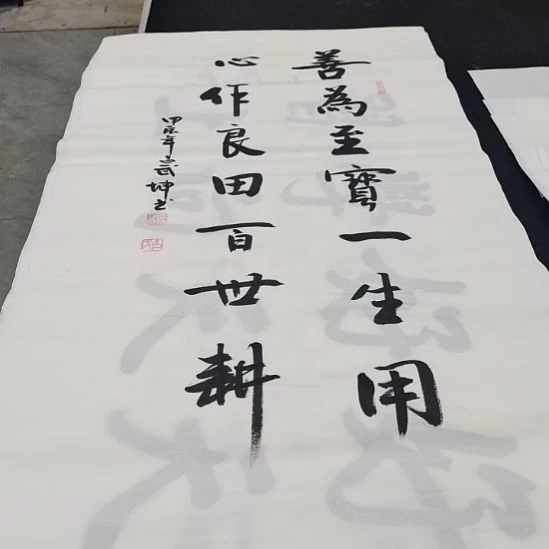 善為至寶一生用
心作良田百世耕
甲辰年武坤书